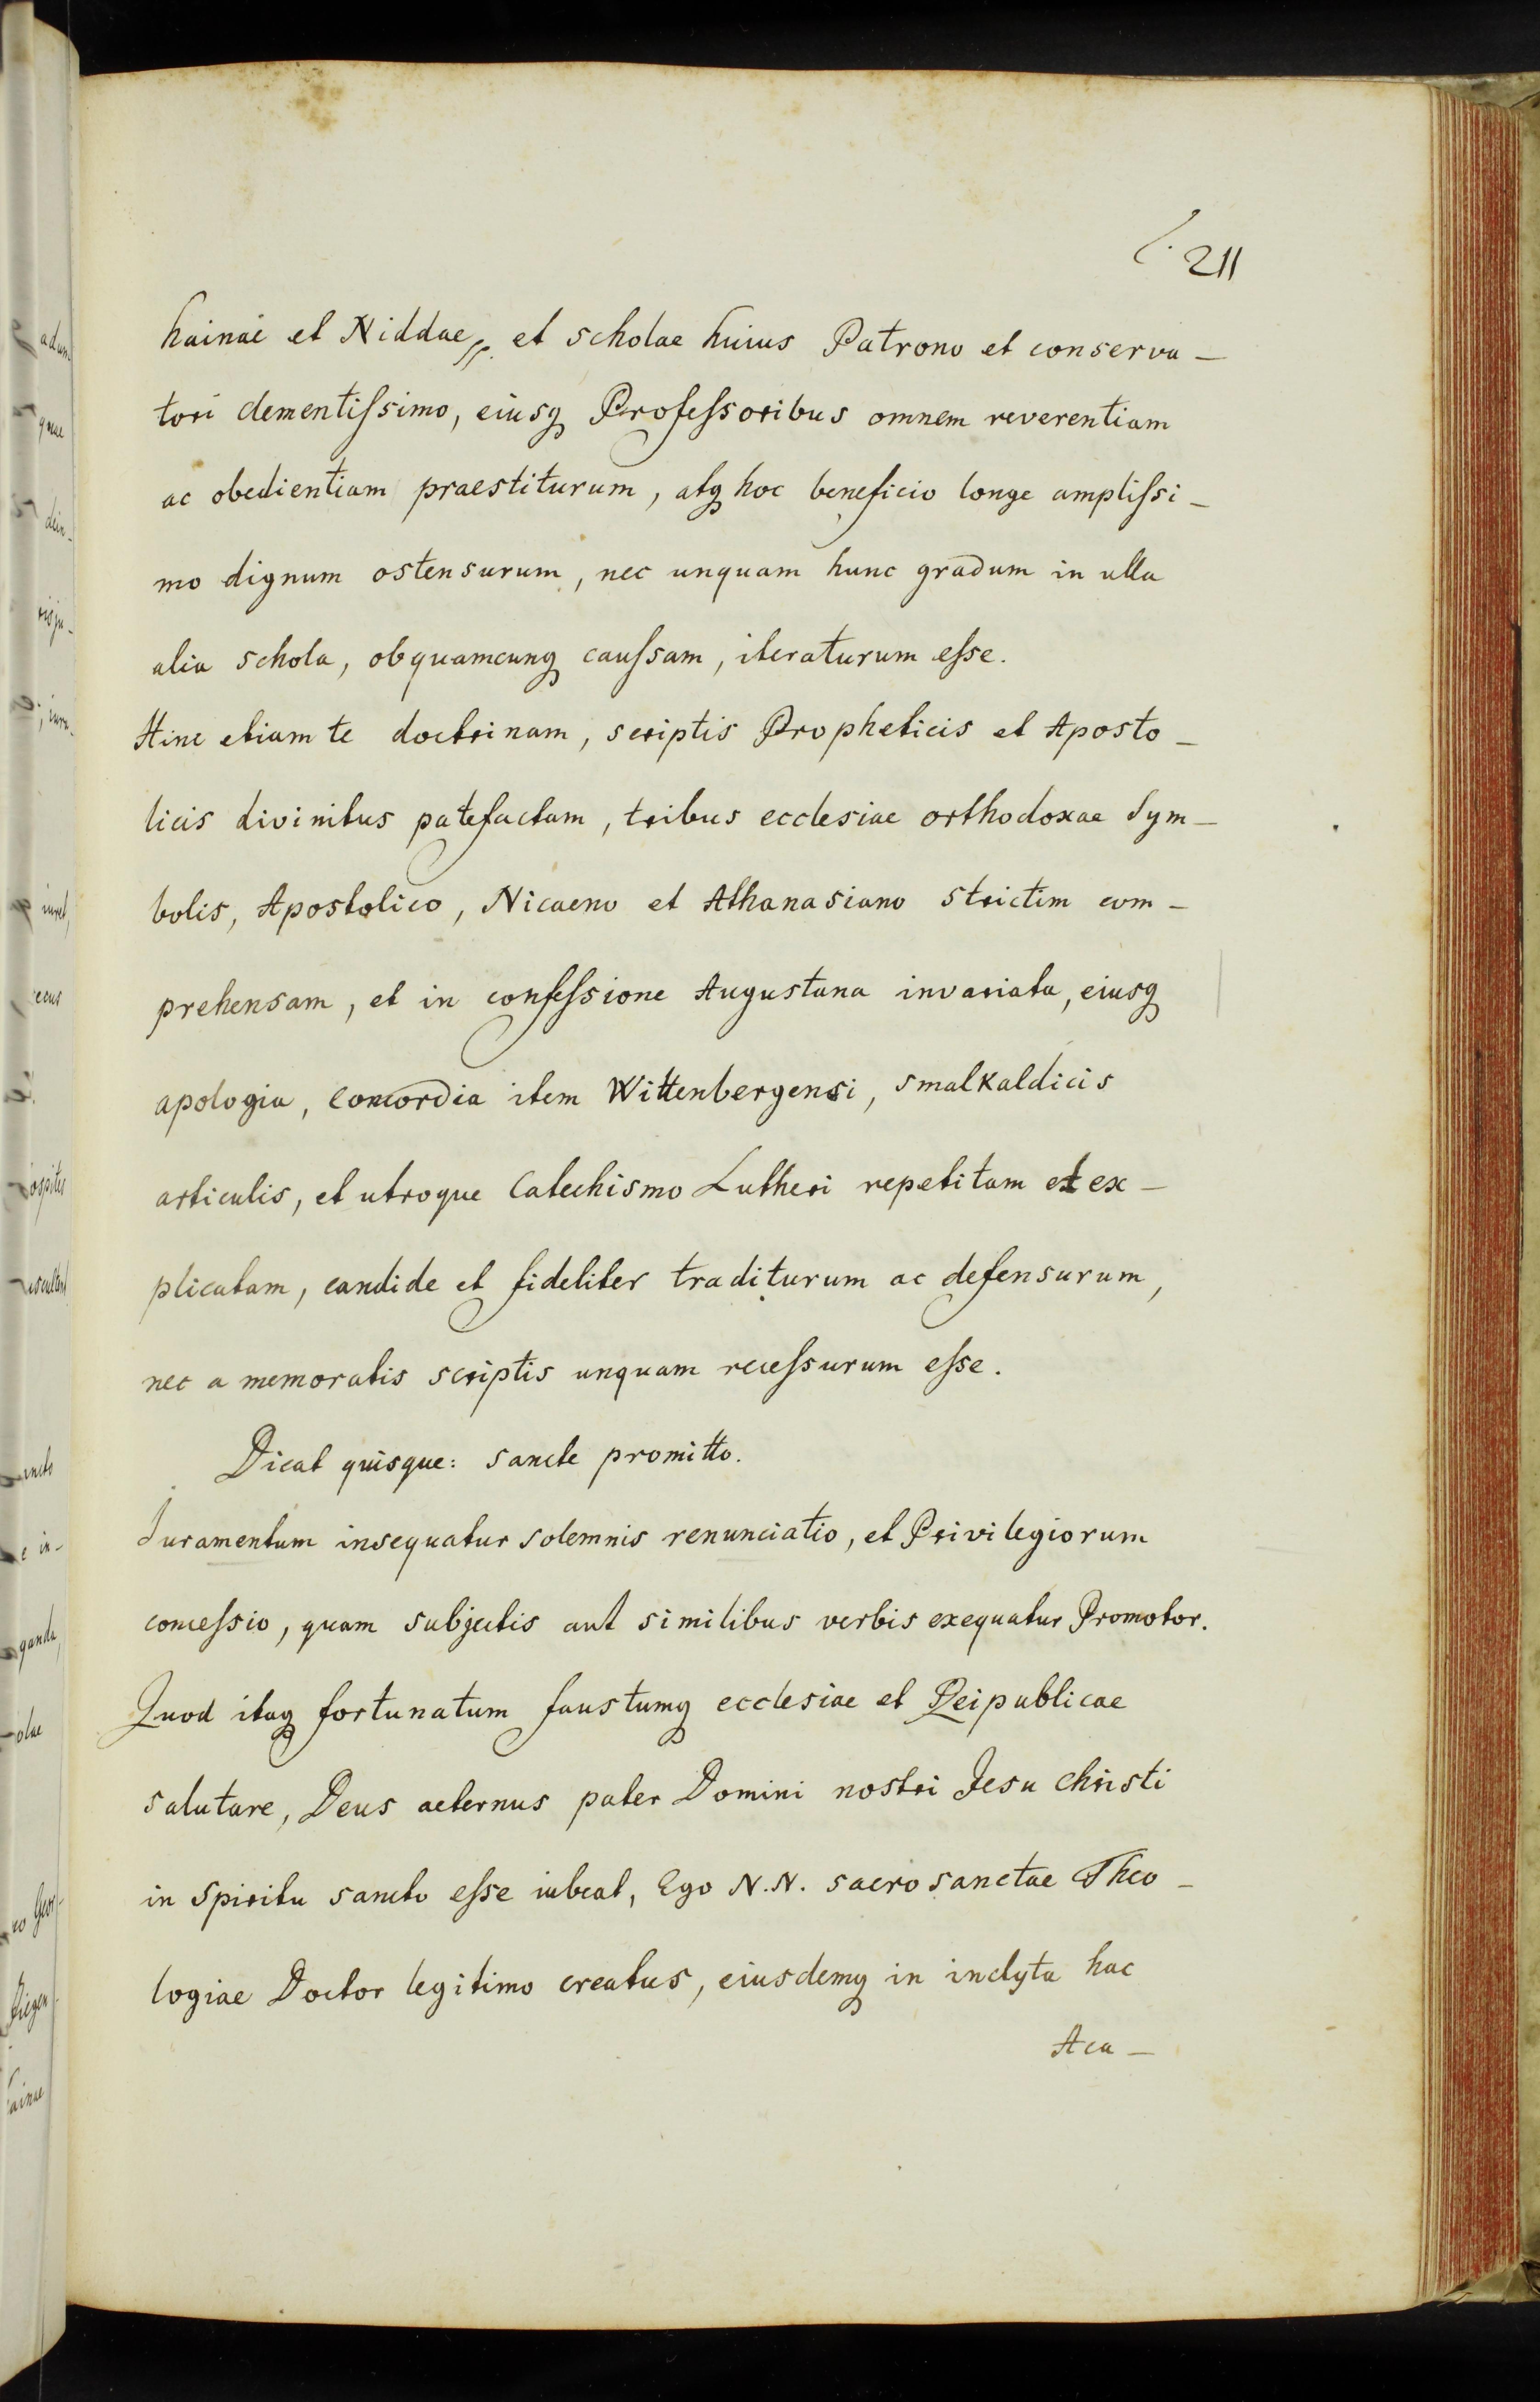 211
hainae et Niddae, et scholae huius Patrono et conserva-
tori clementiſsimo, eiusq Profeſsoribus omnem reverentiam
ac obedientiam praestiturum, atq hoc beneficio longe ampliſsi-
mo dignum ostensurum, nec unquam hunc gradum in ulla
alia schola, ob quamcunq cauſsam, iteraturum eſse.
Hinc etiam te doctrinam, scriptis Propheticis et Aposto-
licis divinitus patefactam, tribus ecclesiae orthodoxae Sym-
bolis, Apostolico, Nicaeno et Athanasiano strictim com-
prehensam, et in confeſsione Augustana invariata, eiusq
apologia, Concordia item Wittenbergensi, smalkaldicis
articulis, et utroque Catechismo Lutheri repetitam et ex-
plicatam, candide et fideliter traditurum ac defensurum,
nec a memoratis scriptis unquam receſsurum eſse.
Dicat quisque: sancte promitto.
Juramentum insequatur solemnis renunciatio, et Privilegiorum
conceſsio, quam subjectis aut similibus verbis exequatur Promotor.
Quod itaq fortunatum faustumq ecclesiae et Reipublicae
salutare, Deus aeternus pater Domini nostri Jesu Christi
in Spiritu sancto eſse iubeat, Ego N.N. sacrosanctae Theo-
logiae Doctor legitimo creatus, eiusdemq in inclyta hac
Aca-